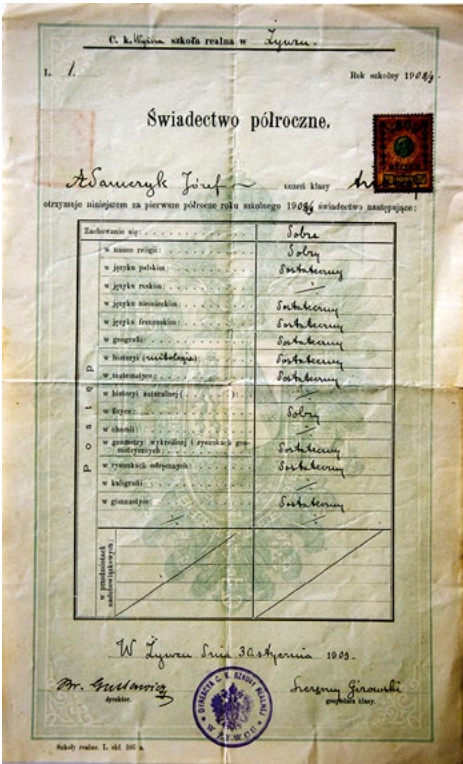 C. k. Wyższa szkoła realna w Żywcu.
L. 1.
Rok szkolny 1908/9.
Świadectwo półroczne.
Adamczyk Józef uczeń klasy
otrzymuje niniejszem za pierwsze półrocze roku szkolnego 1908/9 świadectwo następujące:
Zachowanie się: dobre
Postęp
w nauce religii: dobry
w języku polskim: dostateczny
w języku ruskim: ⁒
w języku niemieckim: dostateczny
w języku francuskim: dostateczny
w geografii: dostateczny
w historyi (mitologia): dostateczny
w matematyce: dostateczny
w historyi naturalnej ( ): ⁒
w fizyce: dobry
w chemii: ⁒
w geometryi wykreślnej i rysunkach geo-
metrycznych: dostateczny
w rysunkach odręcznych: dostateczny
w kaligrafii: ⁒
w gimnastyce: dostateczny
⁒ ⁒
w przedmiotach
nadobowiązkowych:
W Żywcu dnia 30 stycznia 1909.
Br. Gustawicz
dyrektor.
Szczęsny Girowski
gospodarz klasy.
DYREKCYA C. K. SZKOŁY REALNEJ
W ŻYWCU
Szkoły realne. L. skł. 105 a.